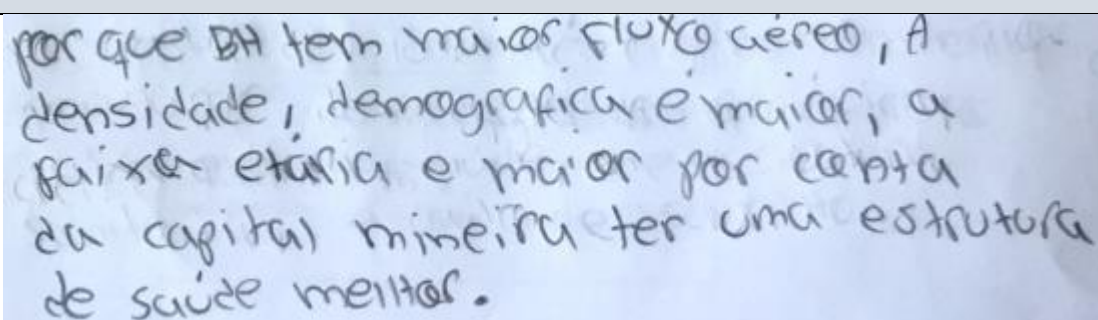 por que BH tem maior fluxo aéreo, A
densidade, demografica e maior, a
faixa etária e maior por conta
da capital mineira ter uma estrutura
de saúde melhor.